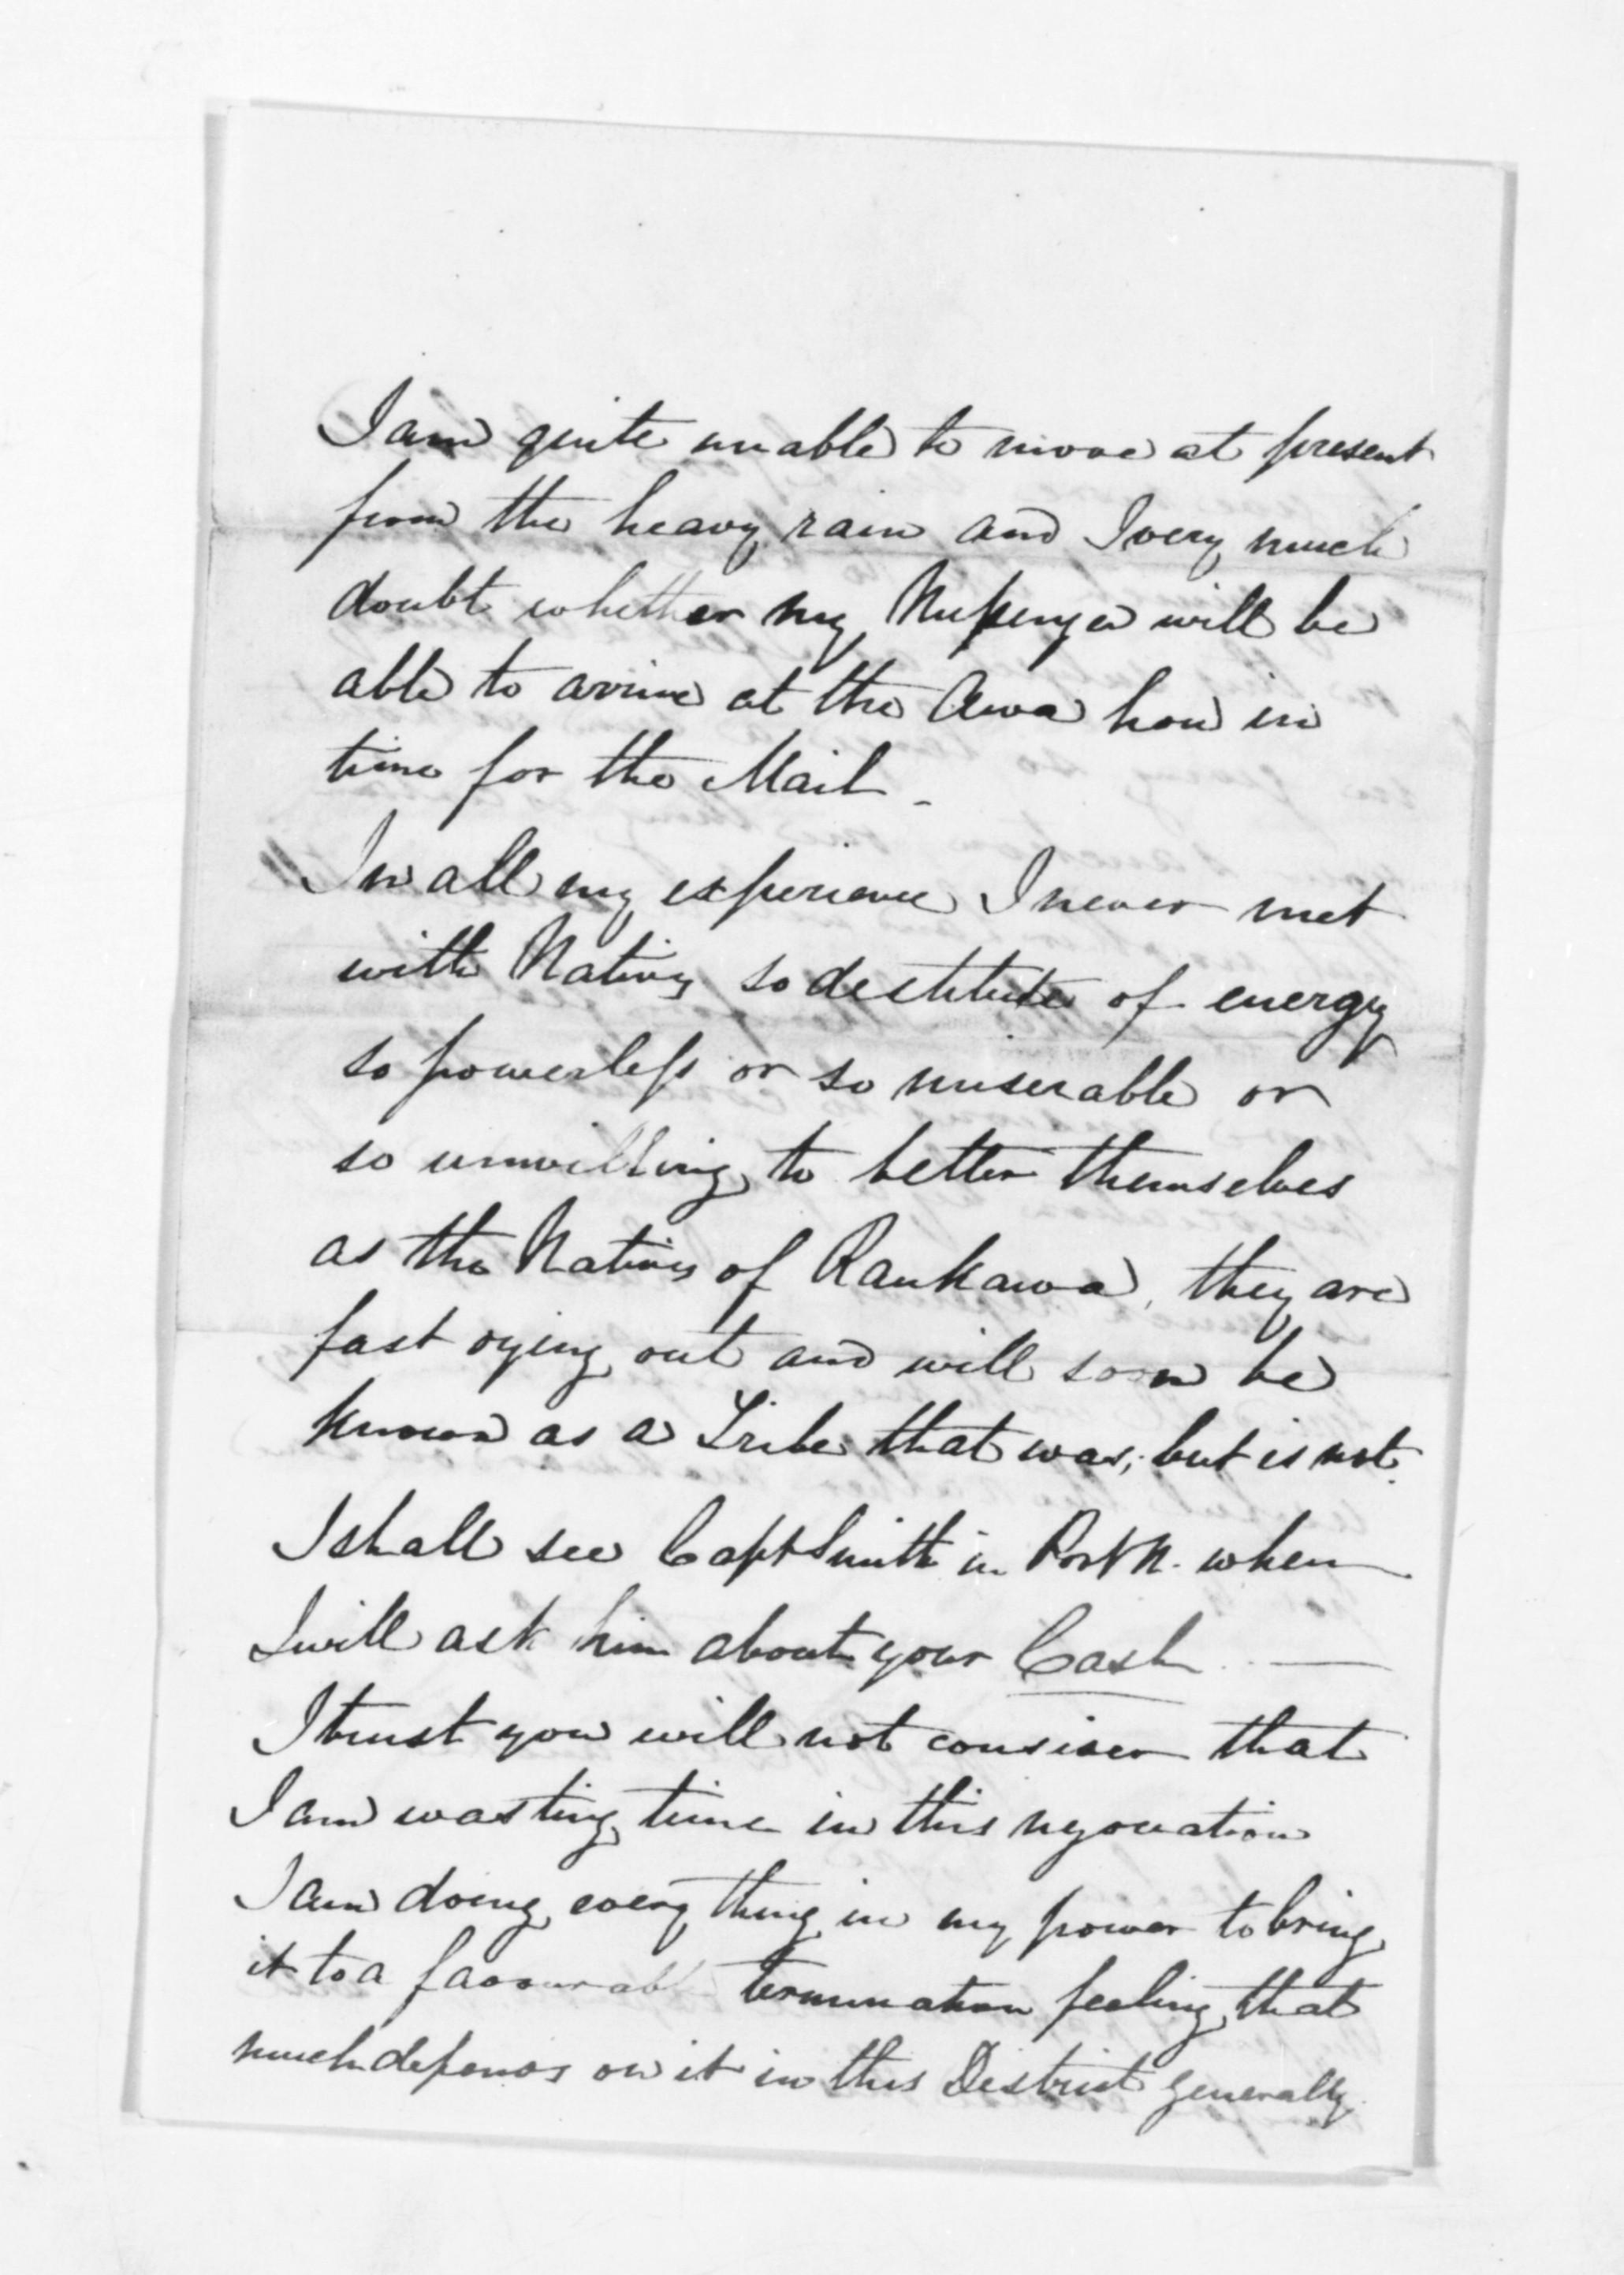 I am quite unable to move at present
from the heavy rain and I very much
doubt whether my Messenger will be
able to arrive at the Awa hou in
time for the Mail -
In all my experience I never met
with Natives so destitute of energy
so powerless or so miserable or
so unwilling to better themselves
as the Natives of Raukawa, they are
fast dying out and will soon be
known as a Tribe that was, but is not.
I shall see Capt Smith in Port N. when
I will ask him about your Cash. —
I trust you will not consider that
I am wasting time in this negociation
I am doing every thing in my power to bring
it to a favourable termination feeling that
much depends on it in this District generally.